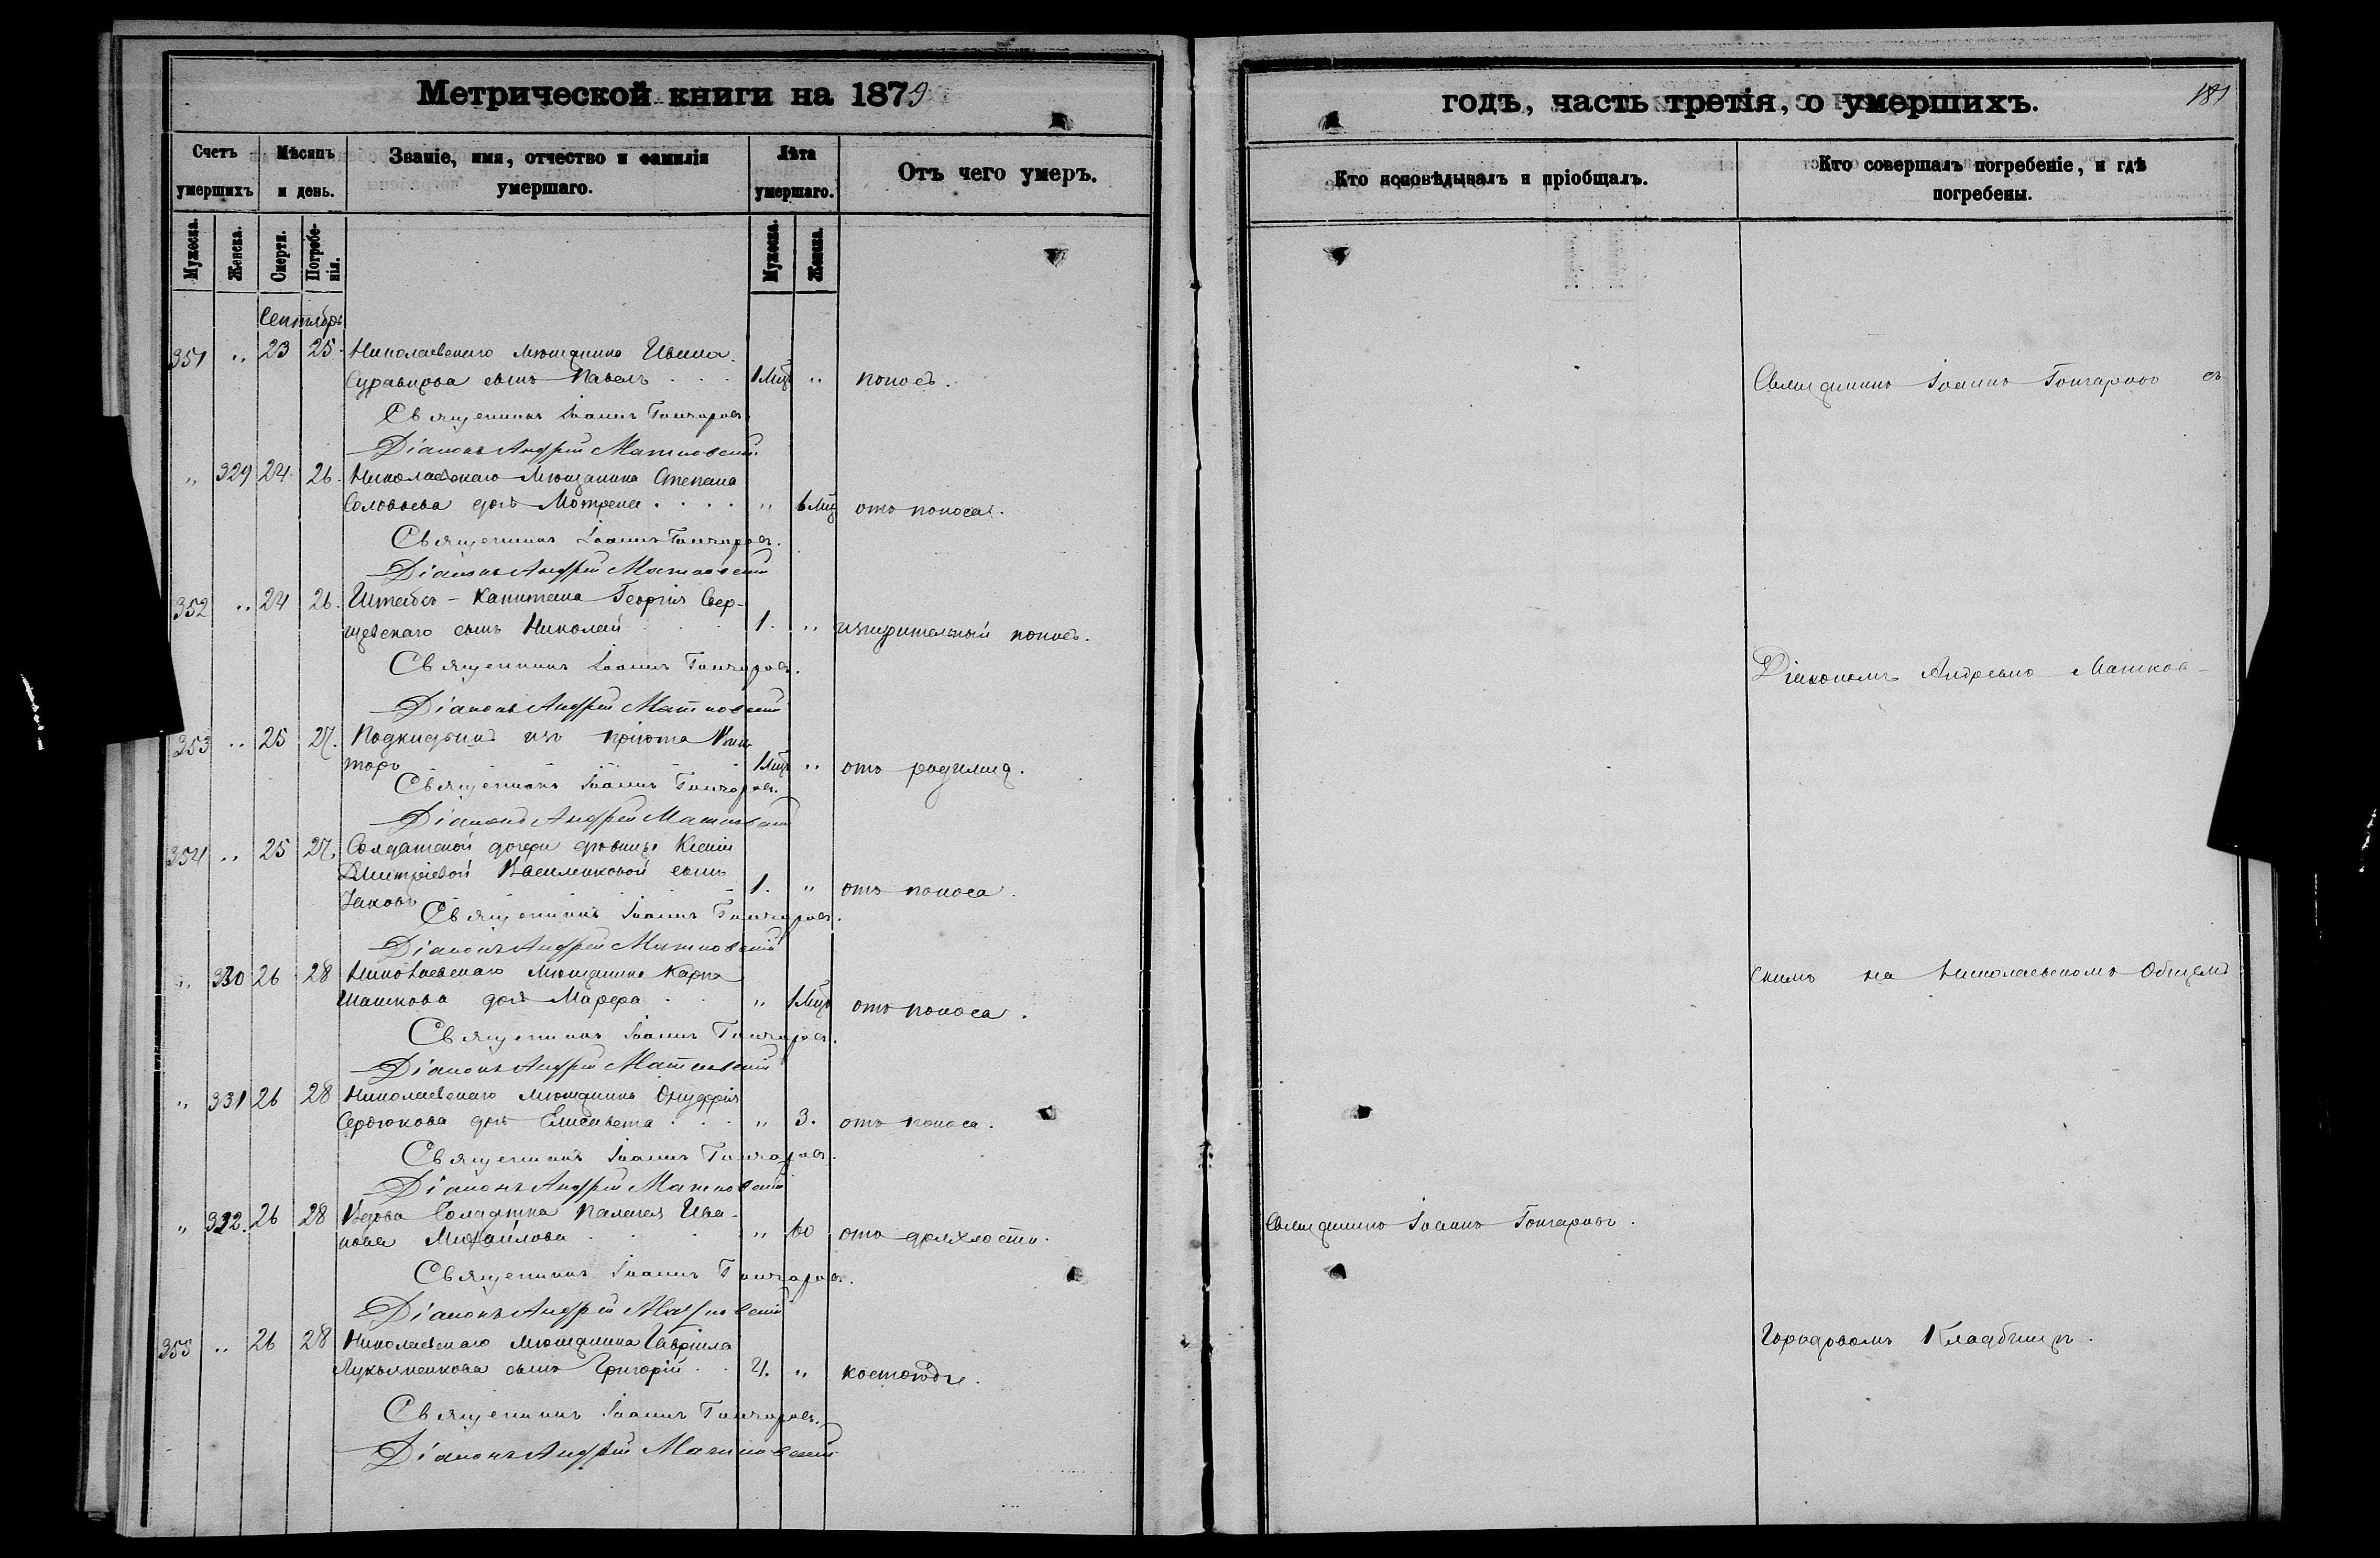 Метрической книги на 1879
Счетъ умершихъ
Мѣсяцъ и день.
Званіе, имя, отчество и фамилія умершаго.
Лѣта умершаго.
Отъ чего умеръ.
Мужеска.
Женска.
Смерти.
Погребенія.
Мужеска.
Женска.
Сентябрь
351 " 23 25. Николаевскаго мѣщанина Ивана
сынъ Павелъ . . . 1 Мцъ " поносъ.
Священникъ Іоаннъ Гончаровъ.
Діаконъ Андрей Матковскій
" 329 24. 26. Николаевскаго Мѣщанина Степана
Соловьева дочь Мотрена . . . . " 6 Мц отъ поноса.
Священникъ Іоаннъ Гончаровъ.
Діаконъ Андрей Матковскій
352 " 24 26. Штабсъ-Капитана Георгія
сынъ Николай . . . 1. " изнурительный поносъ.
Священникъ Іоаннъ Гончаровъ.
Діаконъ Андрей Матковскій
353 " 25 27. Подкидышъ изъ пріюта Вик
торъ 1 Мцъ " отъ родимца.
Священникъ Іоаннъ Гончаровъ.
Діаконъ Андрей Матковскій
354 " 25 27. Солдатской дочери дѣвицы Ксеніи
Дмитріевой Василенковой сынъ
Іаковъ 1. " отъ поноса.
Священникъ Іоаннъ Гончаровъ.
Діаконъ Андрей Матковскій
" 330 26 28 Николаевскаго мѣщанина Карпа
Машкова дочь Марфа . . " 1 Мцъ отъ поноса.
Священникъ Іоаннъ Гончаровъ.
Діаконъ Андрей Матковскій
" 331 26 28 Николаевскаго мѣщанина Онуфрія
Сердюкова дочь Елисавета . . . " 3. отъ поноса.
Священникъ Іоаннъ Гончаровъ.
Діаконъ Андрей Матковскій
" 332. 26 28 Вдова Солдатка Пелагея Ива-
нова Михайлова . . . . " 60 отъ дряхлости.
Священникъ Іоаннъ Гончаровъ.
Діаконъ Андрей Матковскій
355 " 26 28 Николаевскаго мѣщанина Гавріила
Лукьяненкова сынъ Григорій . . 4. " костоѣда.
Священникъ Іоаннъ Гончаровъ.
Діаконъ Андрей Матковскій
годъ, часть третія, о умершихъ.
181
Кто исповѣдывалъ и пріобщалъ.
Кто совершалъ погребеніе, и гдѣ погребены.
Священникъ Іоаннъ Гончаровъ съ
Діакономъ Андреемъ Матков-
скимъ на Николаевскомъ Общемъ
Священникъ Іоаннъ Гончаровъ.
Городовомъ Кладбищѣ.